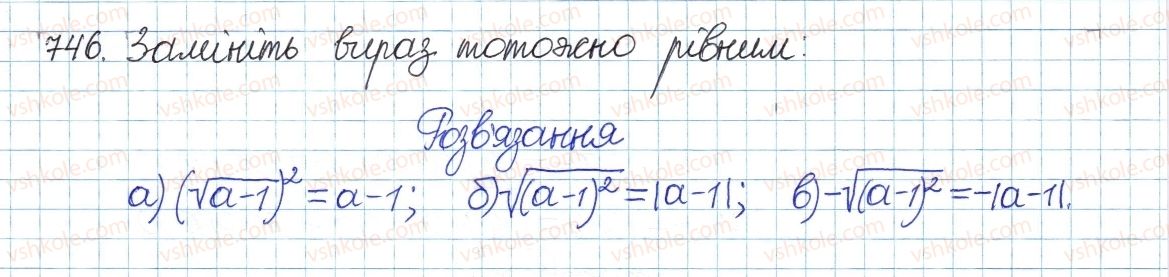 746. Замініть вираз тотожно рівним:
Розв'язання
а) (√(a-1))² = a-1; б) √((a-1)²) = |a-1|; в) -√((a-1)²) = -|a-1|.